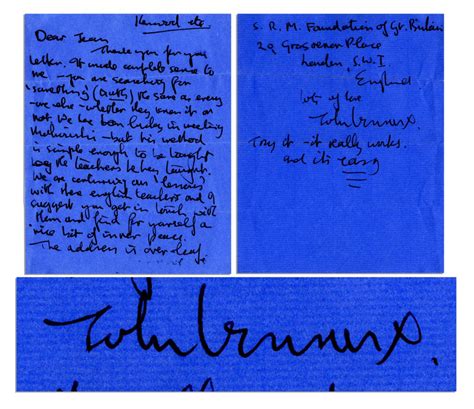 Kenwood etc
Dear Jean,
Thank you for your
letter. It made complete sense to
me - you are searching for
'something' (truth) the same as every
-one else - whether they know it or
not. We have been lucky in meeting
Maharishi - but his method
is simple enough to be taught
by the teachers he has taught.
We are continuing our 'lessons'
with these english teachers and I
suggest you get in touch with
them and find for yourself a
nice bit of inner peace.
The address is over leaf.
S. R. M. Foundation of Gt. Britain
20 Grosvenor Place
London, S.W.1.
England
lots of love
John Lennon x
Try it - it really works.
and its easy
John Lennon x